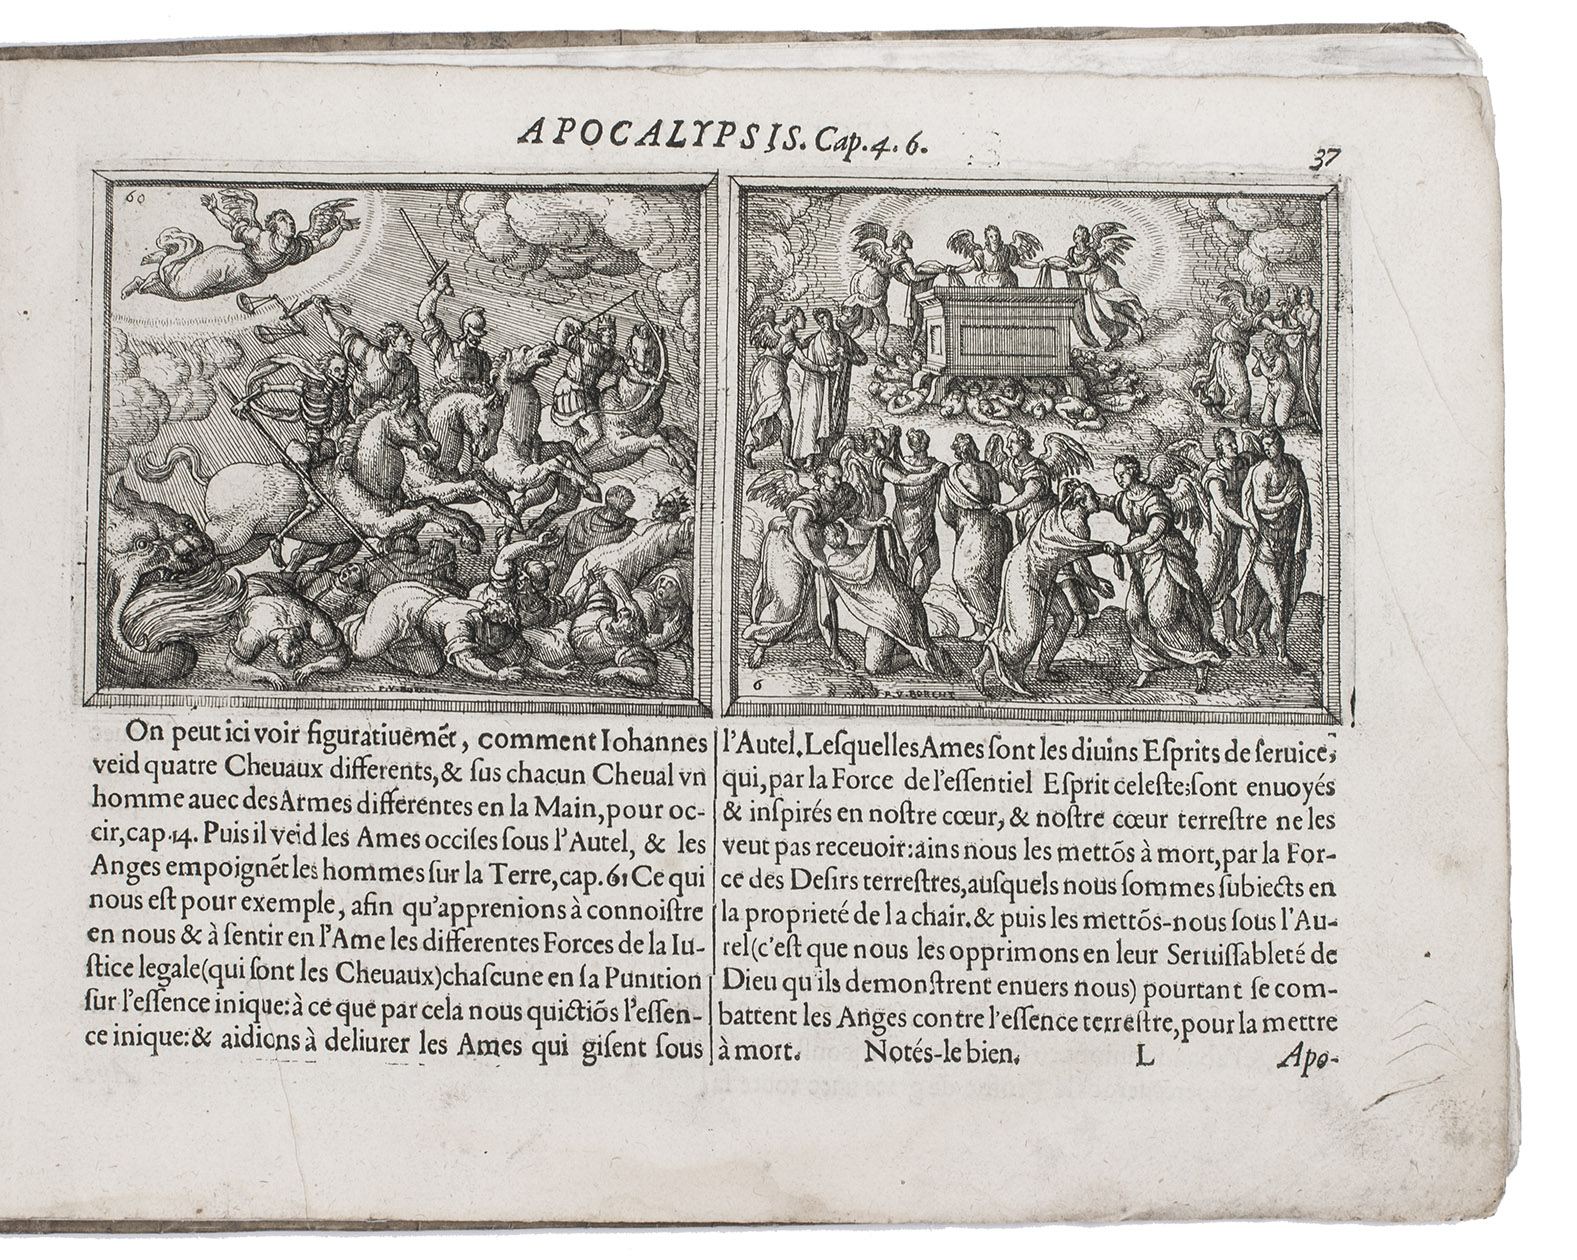 APOCALYPSIS. Cap. 4. 6.
37
60
6
P. V. BORCHT
On peut ici voir figuratiuemẽt, comment Iohannes
veid quatre Cheuaux differents, & sus chacun Cheual vn
homme auec des Armes differentes en la Main, pour oc-
cir, cap. 14. Puis il veid les Ames occiſes ſous l'Autel, & les
Anges empoignẽt les hommes ſur la Terre, cap. 6: Ce qui
nous eſt pour exemple, afin qu'apprenions à connoiſtre
en nous & à ſentir en l'Ame les differentes Forces de la Iu-
ſtice legale (qui ſont les Cheuaux) chaſcune en ſa Punition
ſur l'eſſence inique: à ce que par cela nous quictiõs l'eſſen-
ce inique: & aidions à deliurer les Ames qui giſent ſous
l'Autel. Leſquelles Ames ſont les diuins Eſprits de ſeruice,
qui, par la Force de l'eſſentiel Eſprit celeſte; ſont enuoyés
& inſpirés en noſtre cœur, & noſtre cœur terreſtre ne les
veut pas receuoir: ains nous les mettõs à mort, par la For-
ce des Deſirs terreſtres, auſquels nous ſommes ſubiects en
la proprieté de la chair. & puis les mettõs-nous ſous l'Au-
rel (c'eſt que nous les opprimons en leur Seruiſſableté de
Dieu qu'ils demonſtrent enuers nous) pourtant ſe com-
battent les Anges contre l'eſſence terreſtre, pour la mettre
à mort. Notés-le bien. L Apo-